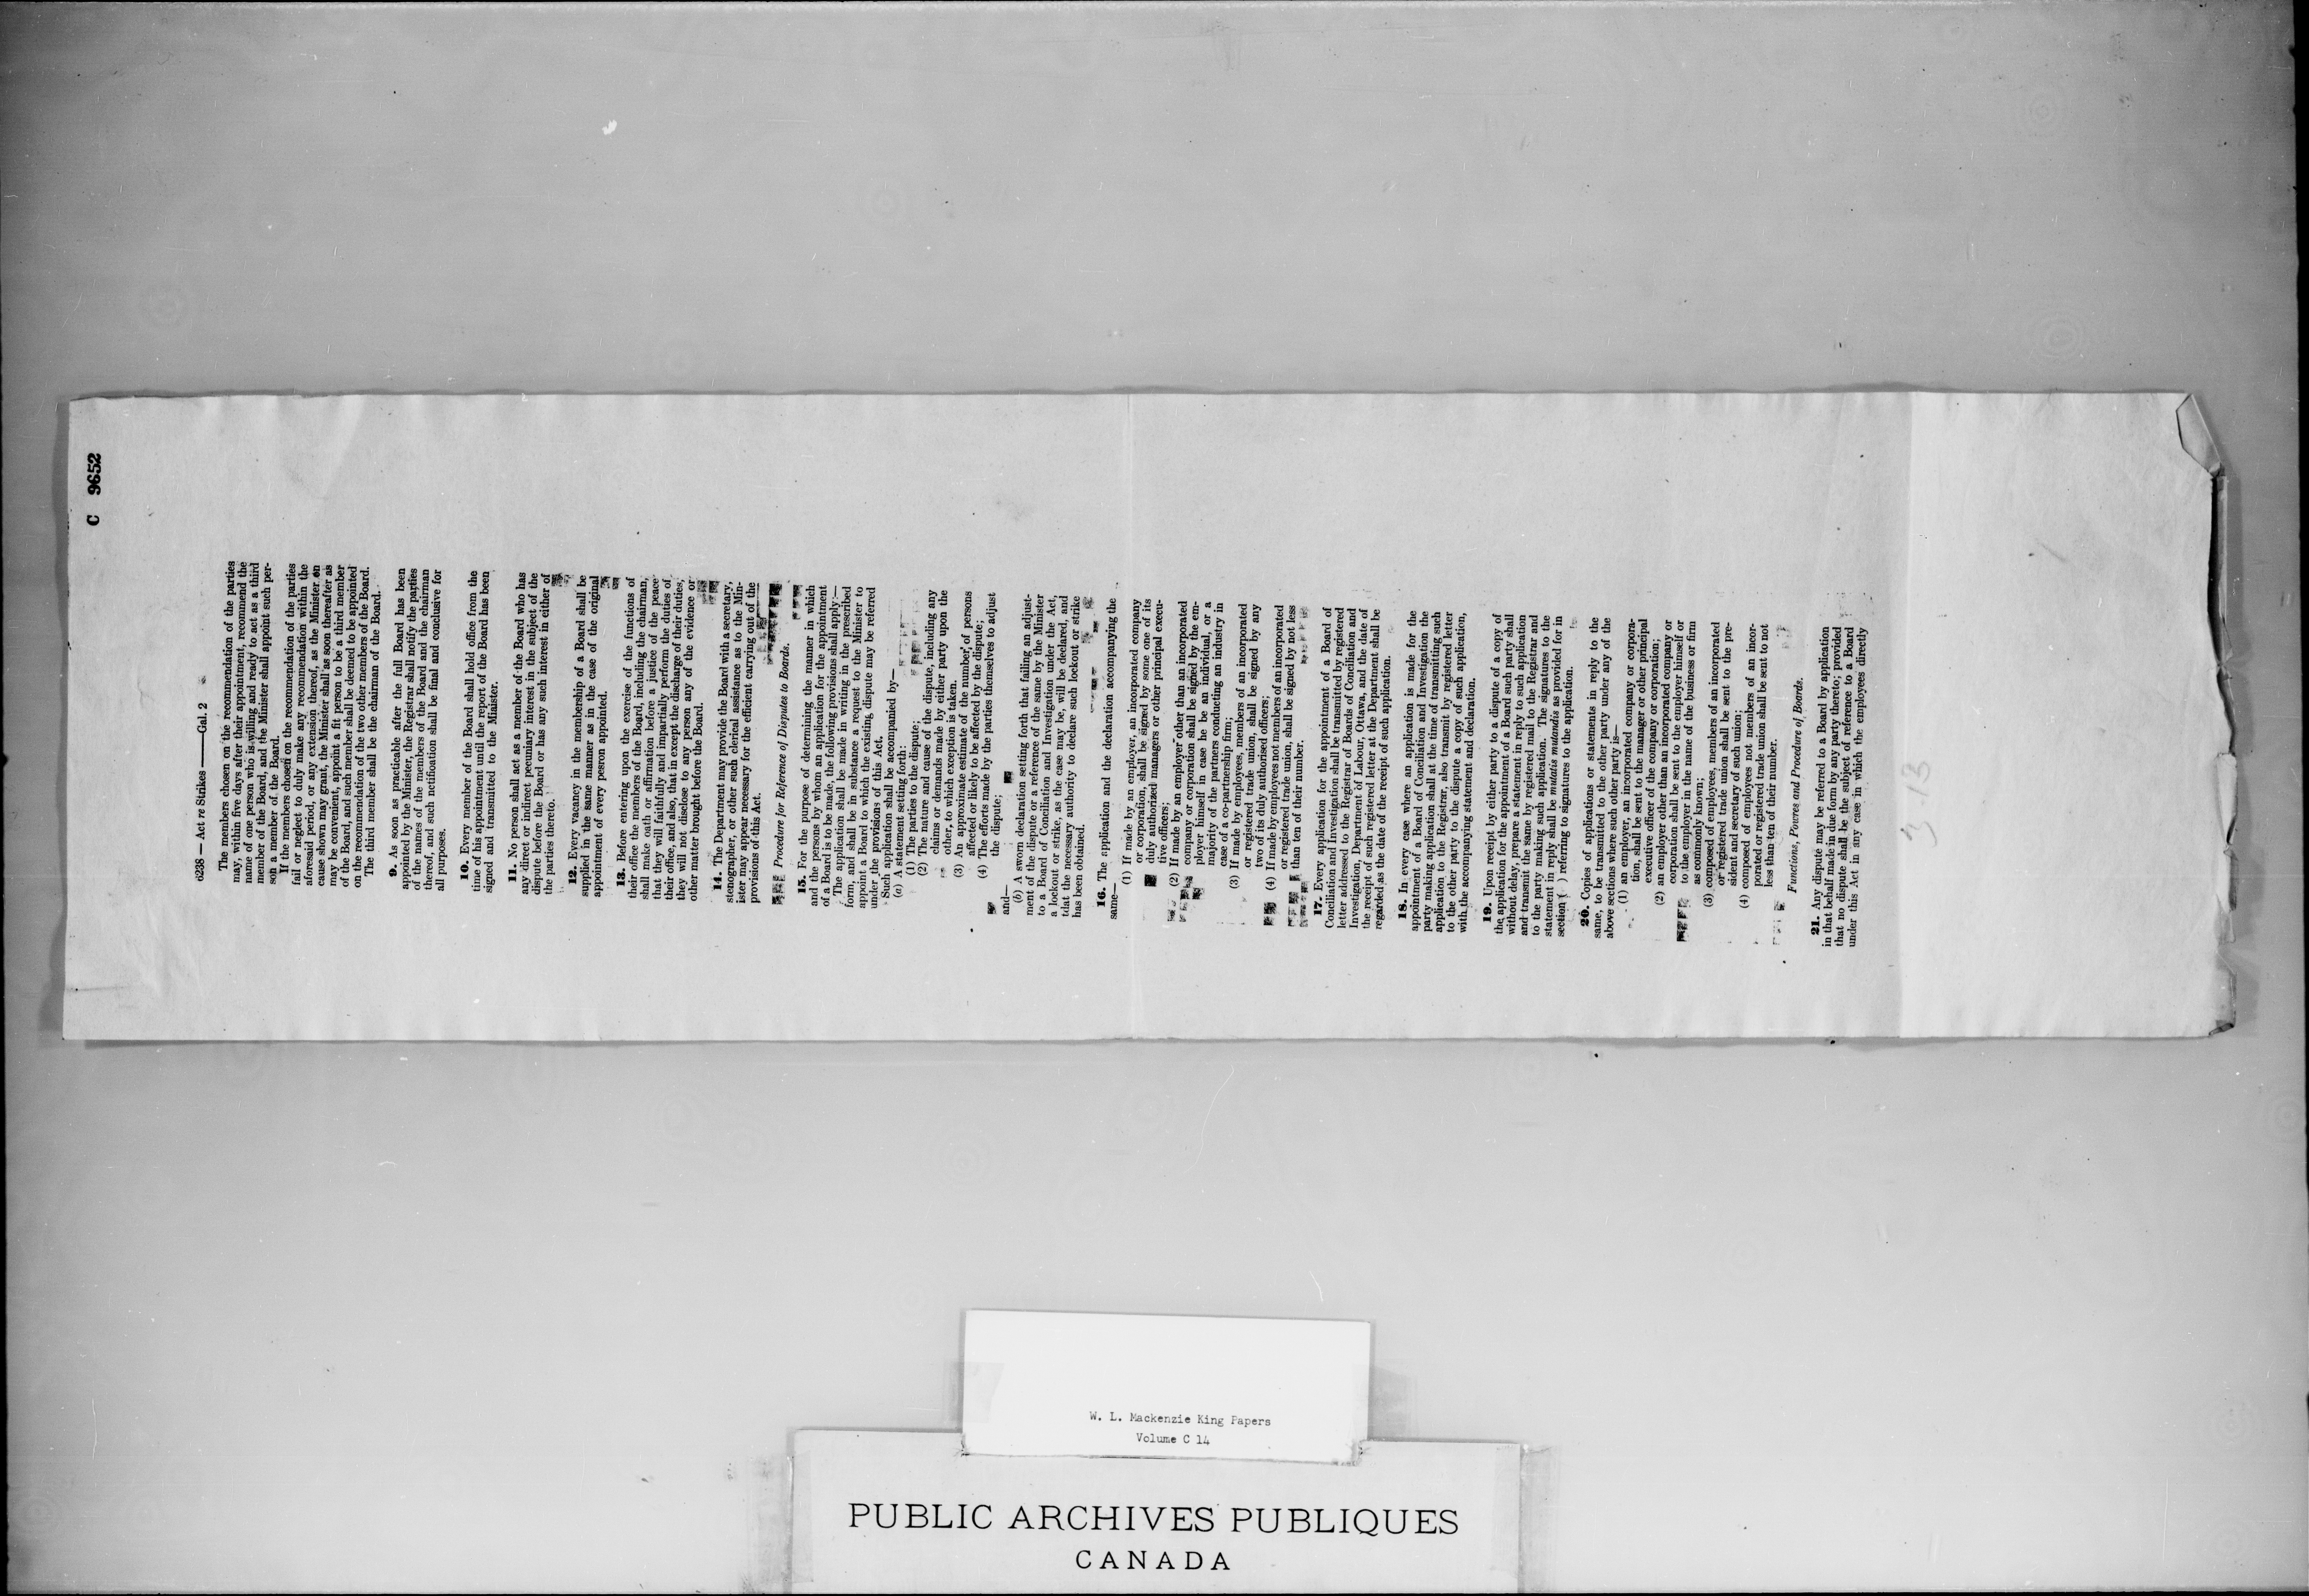 C 9652
6238 — Act re Strikes —— Gal. 2
The members chosen on the recommendation of the parties
may, within five days after their appointment, recommend the
name of one person who is willing and ready to act as a third
member of the Board, and the Minister shall appoint such per-
son a member of the Board.
If the members chosen on the recommendation of the parties
fail or neglect to duly make any recommendation within the
aforesaid period, or any extension thereof, as the Minister on
cause shown may grant, the Minister shall as soon thereafter as
may be convenient, appoint a fit person to be a third member
of the Board, and such member shall be deemed to be appointed
on the recommendation of the two other members of the Board.
The third member shall be the chairman of the Board.
9. As soon as practicable after the full Board has been
appointed by the Minister, the Registrar shall notify the parties
of the names of the members of the Board and the chairman
thereof, and such notification shall be final and conclusive for
all purposes.
10. Every member of the Board shall hold office from the
time of his appointment until the report of the Board has been
signed and transmitted to the Minister.
11. No person shall act as a member of the Board who has
any direct or indirect pecuniary interest in the subject of the
dispute before the Board or has any such interest in either of
the parties thereto.
12. Every vacancy in the membership of a Board shall be
supplied in the same manner as in the case of the original
appointment of every person appointed.
13. Before entering upon the exercise of the functions of
their office the members of the Board, including the chairman,
shall make oath or affirmation before a justice of the peace
that they will faithfully and impartially perform the duties of
their office, and also, that in except the discharge of their duties,
they will not disclose to any person any of the evidence or
other matter brought before the Board.
14. The Department may provide the Board with a secretary,
stenographer, or other such clerical assistance as to the Min-
ister may appear necessary for the efficient carrying out of the
provisions of this Act.
Procedure for Reference of Disputes to Boards.
15. For the purpose of determining the manner in which
and the persons by whom an application for the appointment
of a Board is to be made, the following provisions shall apply:—
The application shall be made in writing in the prescribed
form, and shall be in substance a request to the Minister to
appoint a Board to which the existing dispute may be referred
under the provisions of this Act.
Such application shall be accompanied by—
(a) A statement setting forth:
(1) The parties to the dispute;
(2) The nature and cause of the dispute, including any
claims or demands made by either party upon the
other, to which exception is taken.
(3) An approximate estimate of the number of persons
affected or likely to be affected by the dispute;
(4) The efforts made by the parties themselves to adjust
the dispute;
and—
(b) A sworn declaration setting forth that failing an adjust-
ment of the dispute or a reference of the same by the Minister
to a Board of Conciliation and Investigation under the Act,
a lockout or strike, as the case may be, will be declared, and
that the necessary authority to declare such lockout or strike
has been obtained.
16. The application and the declaration accompanying the
same—
(1) If made by an employer, an incorporated company
or corporation, shall be signed by some one of its
duly authorized managers or other principal execu-
tive officers;
(2) If made by an employer other than an incorporated
company or corporation shall be signed by the em-
ployer himself in case he be an individual, or a
majority of the partners conducting an industry in
case of a co-partnership firm;
(3) If made by employees, members of an incorporated
or registered trade union, shall be signed by any
two of its duly authorised officers;
(4) If made by employees not members of an incorporated
or registered trade union, shall be signed by not less
than ten of their number.
17. Every application for the appointment of a Board of
Conciliation and Investigation shall be transmitted by registered
letter addressed to the Registrar of Boards of Conciliation and
Investigation, Department of Labour, Ottawa, and the date of
the receipt of such registered letter at the Department shall be
regarded as the date of the receipt of such application.
18. In every case where an application is made for the
appointment of a Board of Conciliation and Investigation the
party making application shall at the time of transmitting such
application to the Registrar, also transmit by registered letter
to the other party to the dispute a copy of such application,
with the accompanying statement and declaration.
19. Upon receipt by either party to a dispute of a copy of
the application for the appointment of a Board such party shall
without delay, prepare a statement in reply to such application
and transmit the same by registered mail to the Registrar and
to the party making such application. The signatures to the
statement in reply shall be mutatis mutandis as provided for in
section ( ) referring to signatures to the application.
20. Copies of applications or statements in reply to the
same, to be transmitted to the other party under any of the
above sections where such other party is—
(1) an employer, an incorporated company or corpora-
tion, shall be sent to the manager or other principal
executive officer of the company or corporation;
(2) an employer other than an incorporated company or
corporation shall be sent to the employer himself or
to the employer in the name of the business or firm
as commonly known;
(3) composed of employees, members of an incorporated
or registered trade union shall be sent to the pre-
sident and secretary of such union;
(4) composed of employees not members of an incor-
porated or registered trade union shall be sent to not
less than ten of their number.
Functions, Powres and Procedure of Boards.
21. Any dispute may be referred to a Board by application
in that behalf made in due form by any party thereto; provided
that no dispute shall be the subject of reference to a Board
under this Act in any case in which the employees directly
W. L. Mackenzie King Papers
Volume C 14
PUBLIC ARCHIVES PUBLIQUES
CANADA